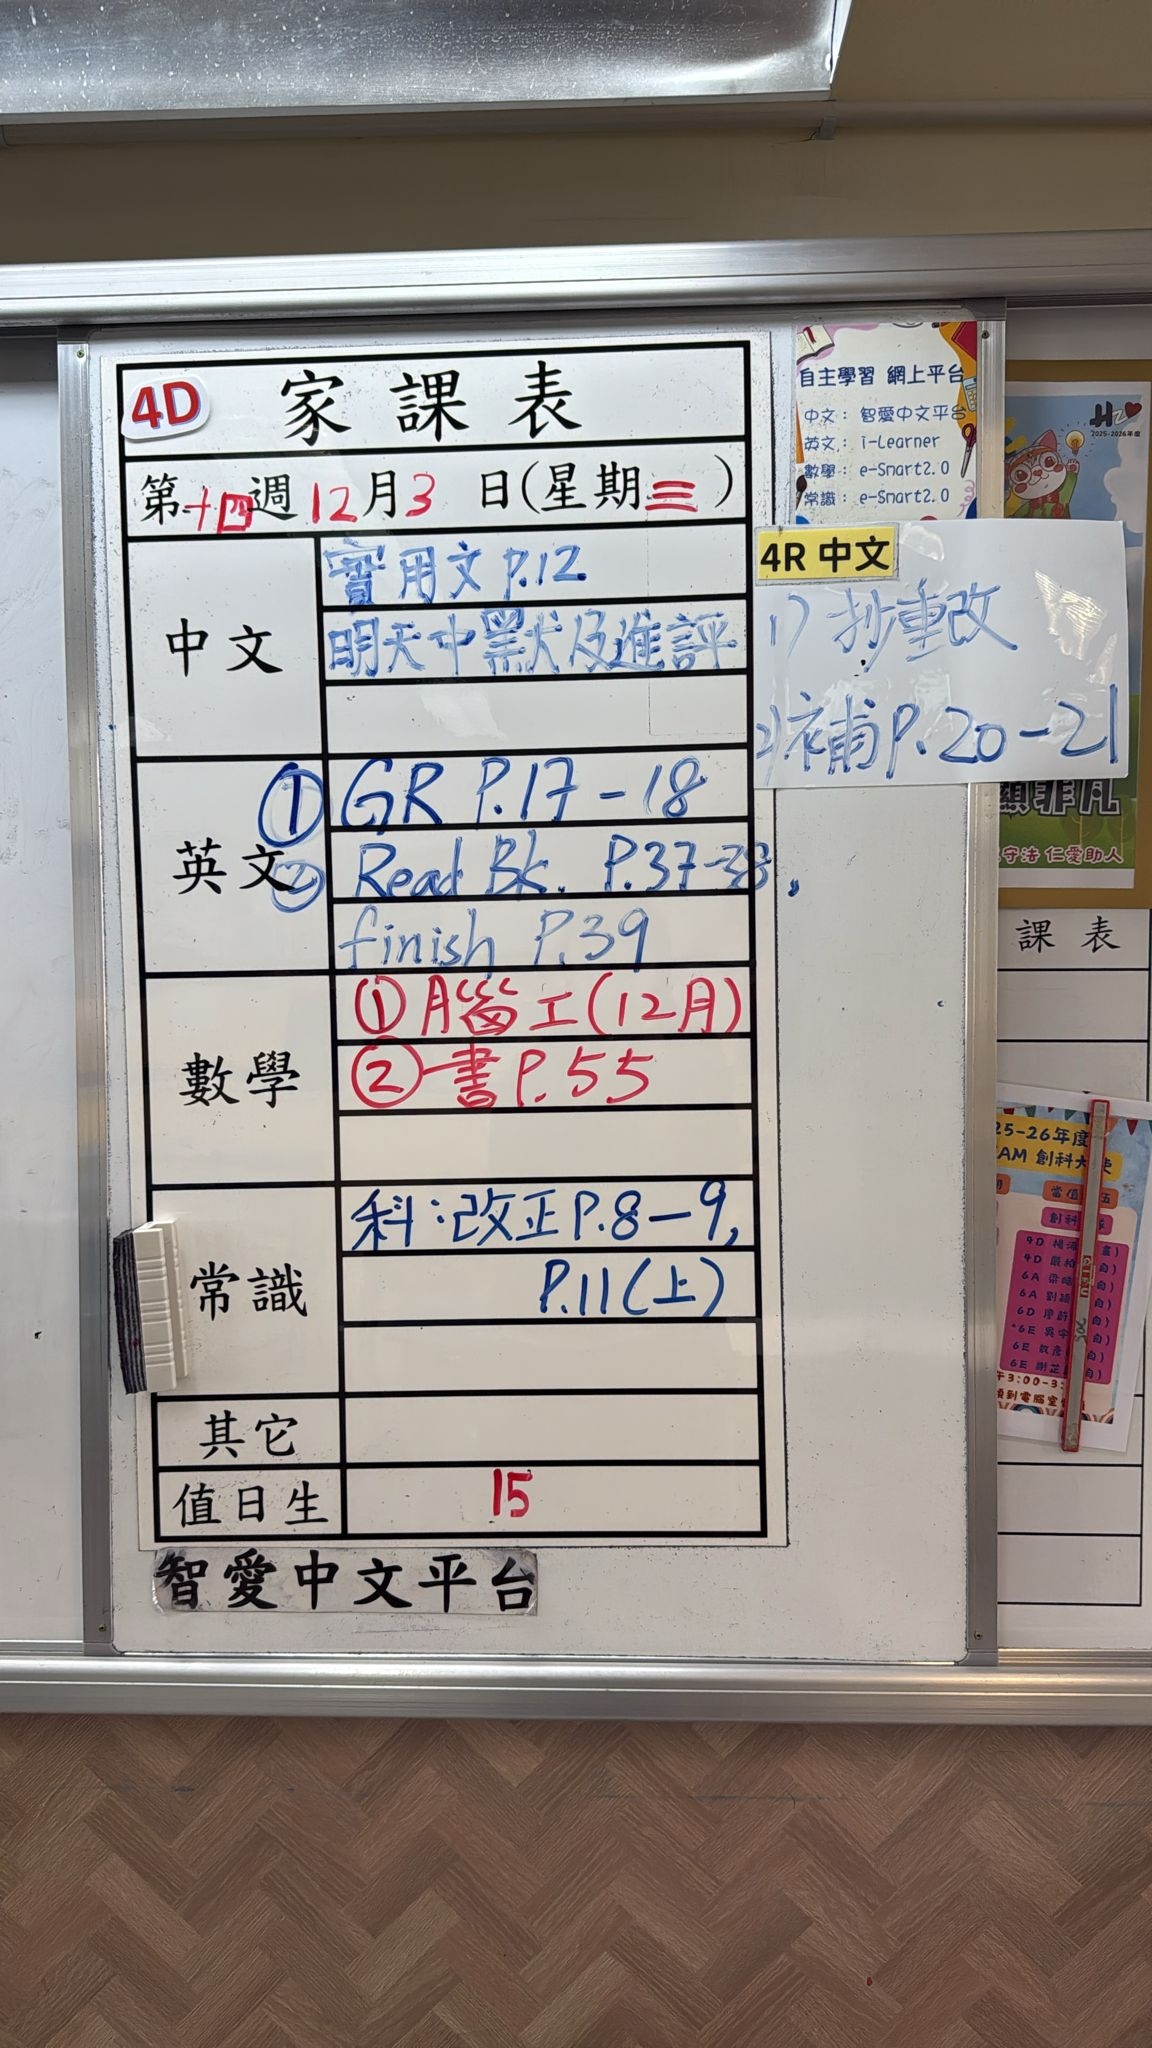 4D
家課表
第十四週12月3日(星期三)
中文
實用文P.12
明天中默及進評
英文
① GR P.17-18
② Read Bk. P.37-38,
finish P.39
數學
①月腦工(12月)
②書P.55
常識
科:改正P.8-9,
P.11(上)
其它
值日生
15
智愛中文平台
自主學習 網上平台
中文: 智愛中文平台
英文: i-Learner
數學: e-Smart2.0
常識: e-Smart2.0
4R 中文
1) 抄重改
2)補P.20-21
2025-2026年度
守法 仁愛助人
課表
25-26年度
AM 創科大使
當值
創科
4D
4D
6A
6A
6D
6E
6E
6E